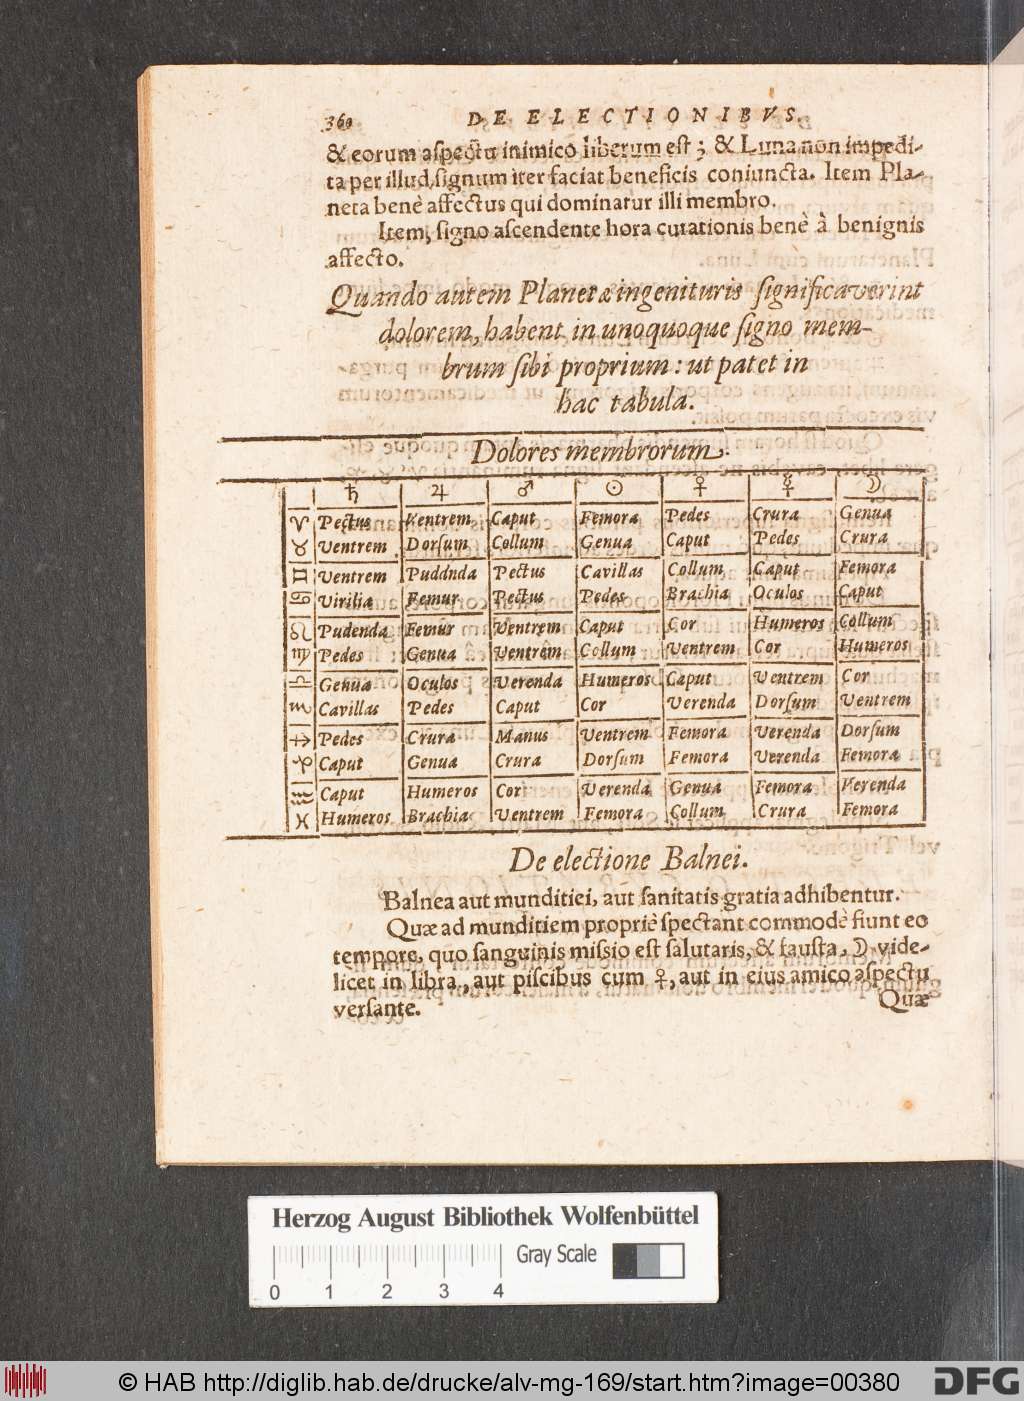 360 DE ELECTIONIBVS.
& eorum aſpectu inimico liberum eſt; & Luna non impedi-
ta per illud ſignum iter faciat beneficis coniuncta. Item Pla-
neta benè affectus qui dominatur illi membro.
Item, ſigno aſcendente hora curationis benè à benignis
affecto.
Quando autem Planetæ in genituris ſignificaverint
dolorem, habent in unoquoque ſigno mem-
brum ſibi proprium: ut patet in
hac tabula.
Dolores membrorum.
♄ ♃ ♂ ☉ ♀ ☿ ☽
♈ Pectus Ventrem Caput Femora Pedes Crura Genua
♉ Ventrem Dorſum Collum Genua Caput Pedes Crura
♊ Ventrem Puddnda Pectus Cavillas Collum Caput Femora
♋ Virilia Femur Pectus Pedes Brachia Oculos Caput
♌ Pudenda Femur Ventrem Caput Cor Humeros Collum
♍ Pedes Genua Ventrem Collum Ventrem Cor Humeros
♎ Genua Oculos Verenda Humeros Caput Ventrem Cor
♏ Cavillas Pedes Caput Cor Verenda Dorſum Ventrem
♐ Pedes Crura Manus Ventrem Femora Verenda Dorſum
♑ Caput Genua Crura Dorſum Femora Verenda Femora
♒ Caput Humeros Cor Verenda Genua Femora Verenda
♓ Humeros Brachia Ventrem Femora Collum Crura Femora
De electione Balnei.
Balnea aut munditiei, aut ſanitatis gratia adhibentur.
Quæ ad munditiem propriè ſpectant commodè fiunt eo
tempore, quo ſanguinis miſſio eſt ſalutaris, & fauſta, ☽ vide-
licet in libra, aut piſcibus cum ♀, aut in eius amico aſpectu
verſante.
Quæ
Herzog August Bibliothek Wolfenbüttel
Gray Scale
0 1 2 3 4
© HAB http://diglib.hab.de/drucke/alv-mg-169/start.htm?image=00380
DFG